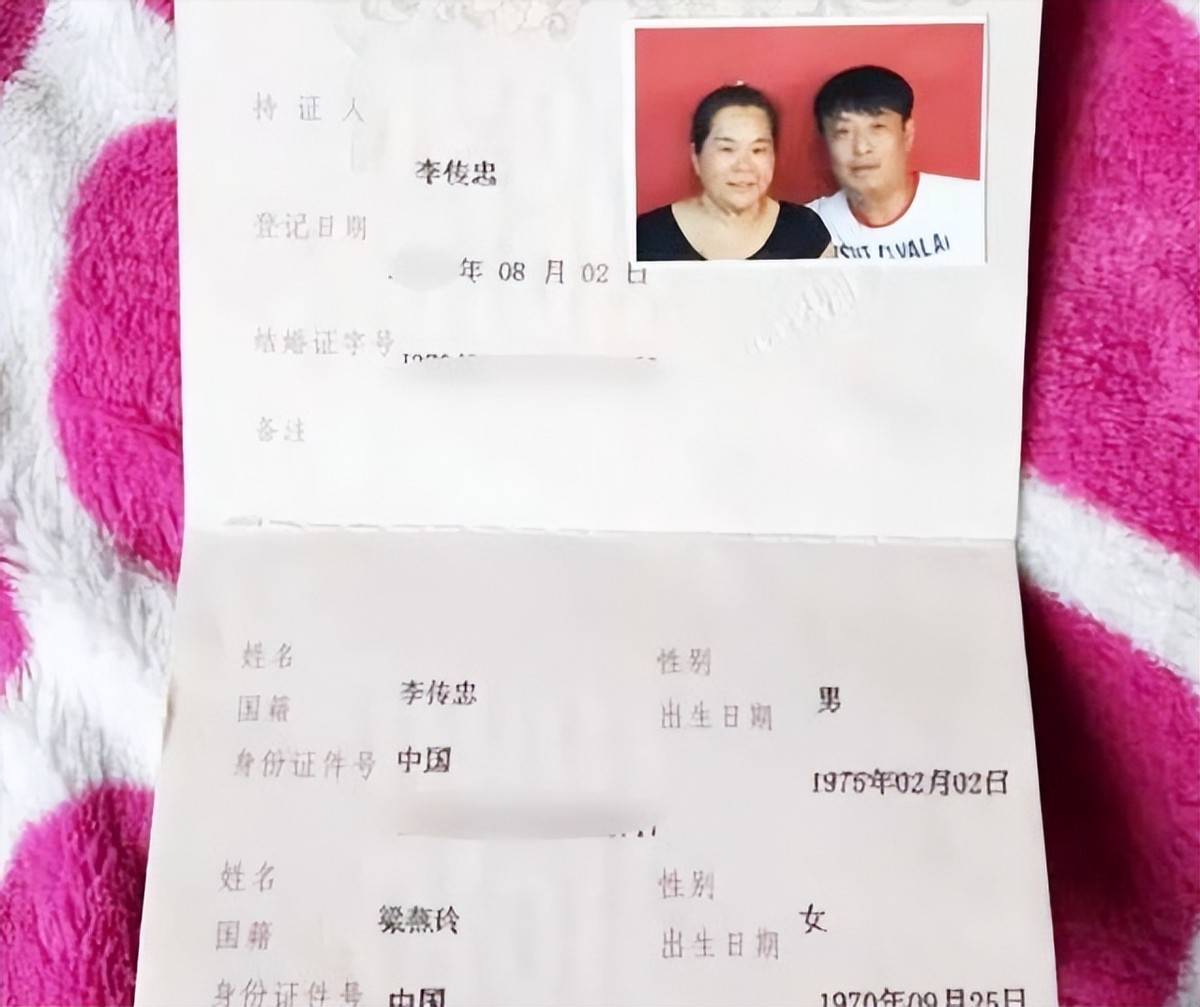 持证人
李传忠
登记日期
年 08 月 02 日
结婚证字号
备注
姓名
李传忠
性别
男
国籍
中国
出生日期
1975年02月02日
身份证件号
姓名
梁燕玲
性别
女
国籍
中国
出生日期
1970年09月25日
身份证件号